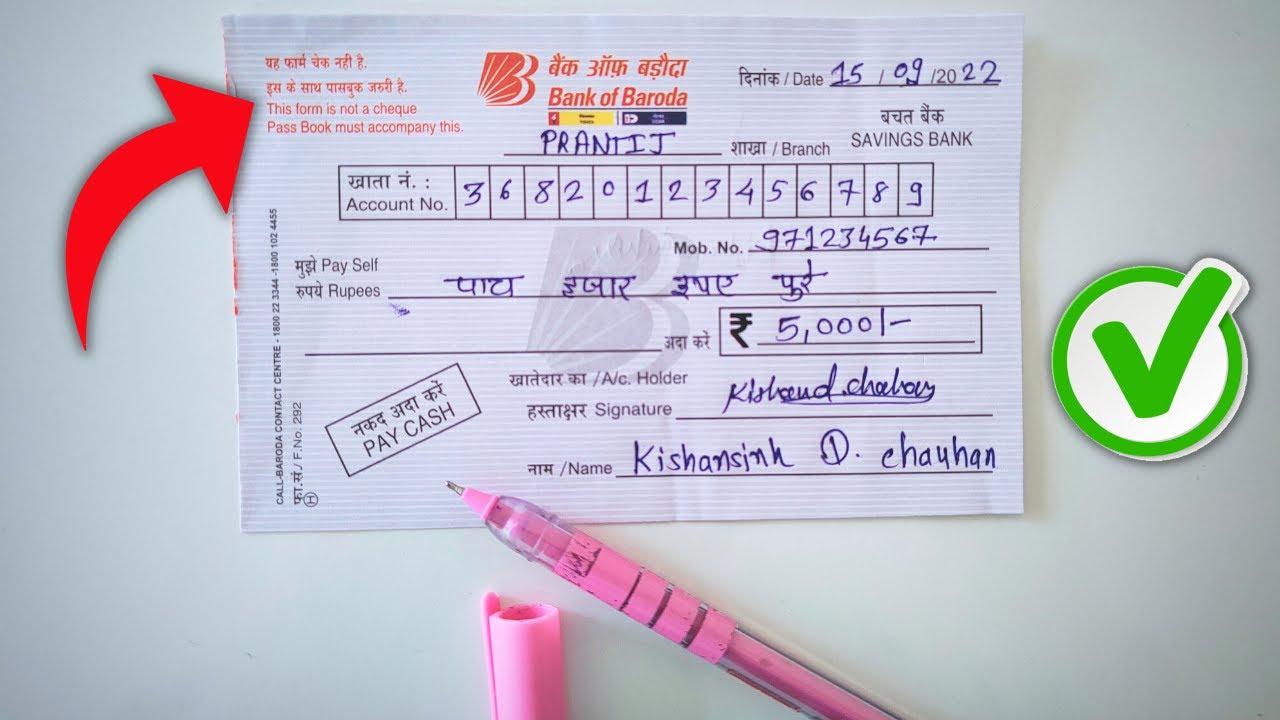 यह फार्म चेक नही है.
इस के साथ पासबुक जरुरी है.
This form is not a cheque
Pass Book must accompany this.
बैंक ऑफ़ बड़ौदा
Bank of Baroda
दिनांक / Date 15 / 09 / 2022
बचत बैंक
SAVINGS BANK
PRANTIJ शाखा / Branch
खाता नं. :
Account No. 3 6 8 2 0 1 2 3 4 5 6 7 8 9
Mob. No. 971234567
मुझे Pay Self
रुपये Rupees पाच हजार रुपए पुरे
अदा करे ₹ 5,000/-
खातेदार का / A/c. Holder
हस्ताक्षर Signature
नकद अदा करें
PAY CASH
नाम / Name Kishansinh D. Chauhan
CALL-BARODA CONTACT CENTRE - 1800 22 3344 -1800 102 4455
फा.सं./ F. No. 292
H